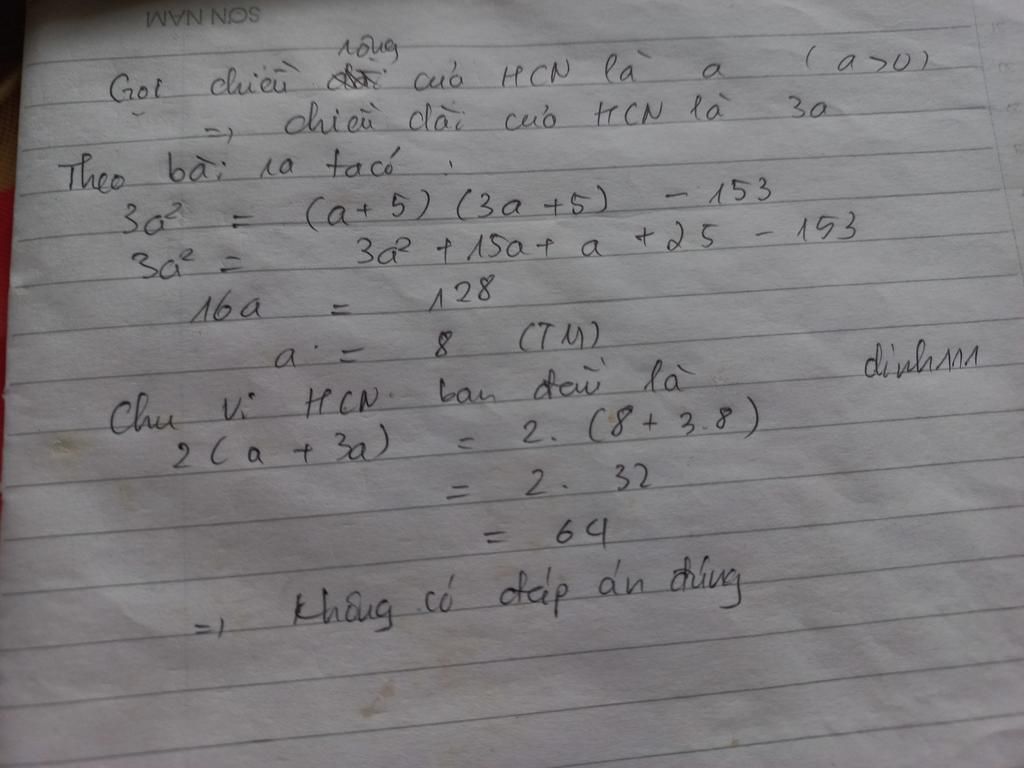 SƠN NAM
Gọi chiều rộng của HCN là a (a>0)
=> chiều dài của HCN là 3a
Theo bài ra ta có :
3a² = (a+5) (3a+5) - 153
3a² = 3a² + 15a + a + 25 - 153
16a = 128
a = 8 (TM)
Chu vi HCN ban đầu là dinh111
2(a + 3a) = 2. (8 + 3.8)
= 2. 32
= 64
=> Không có đáp án đúng